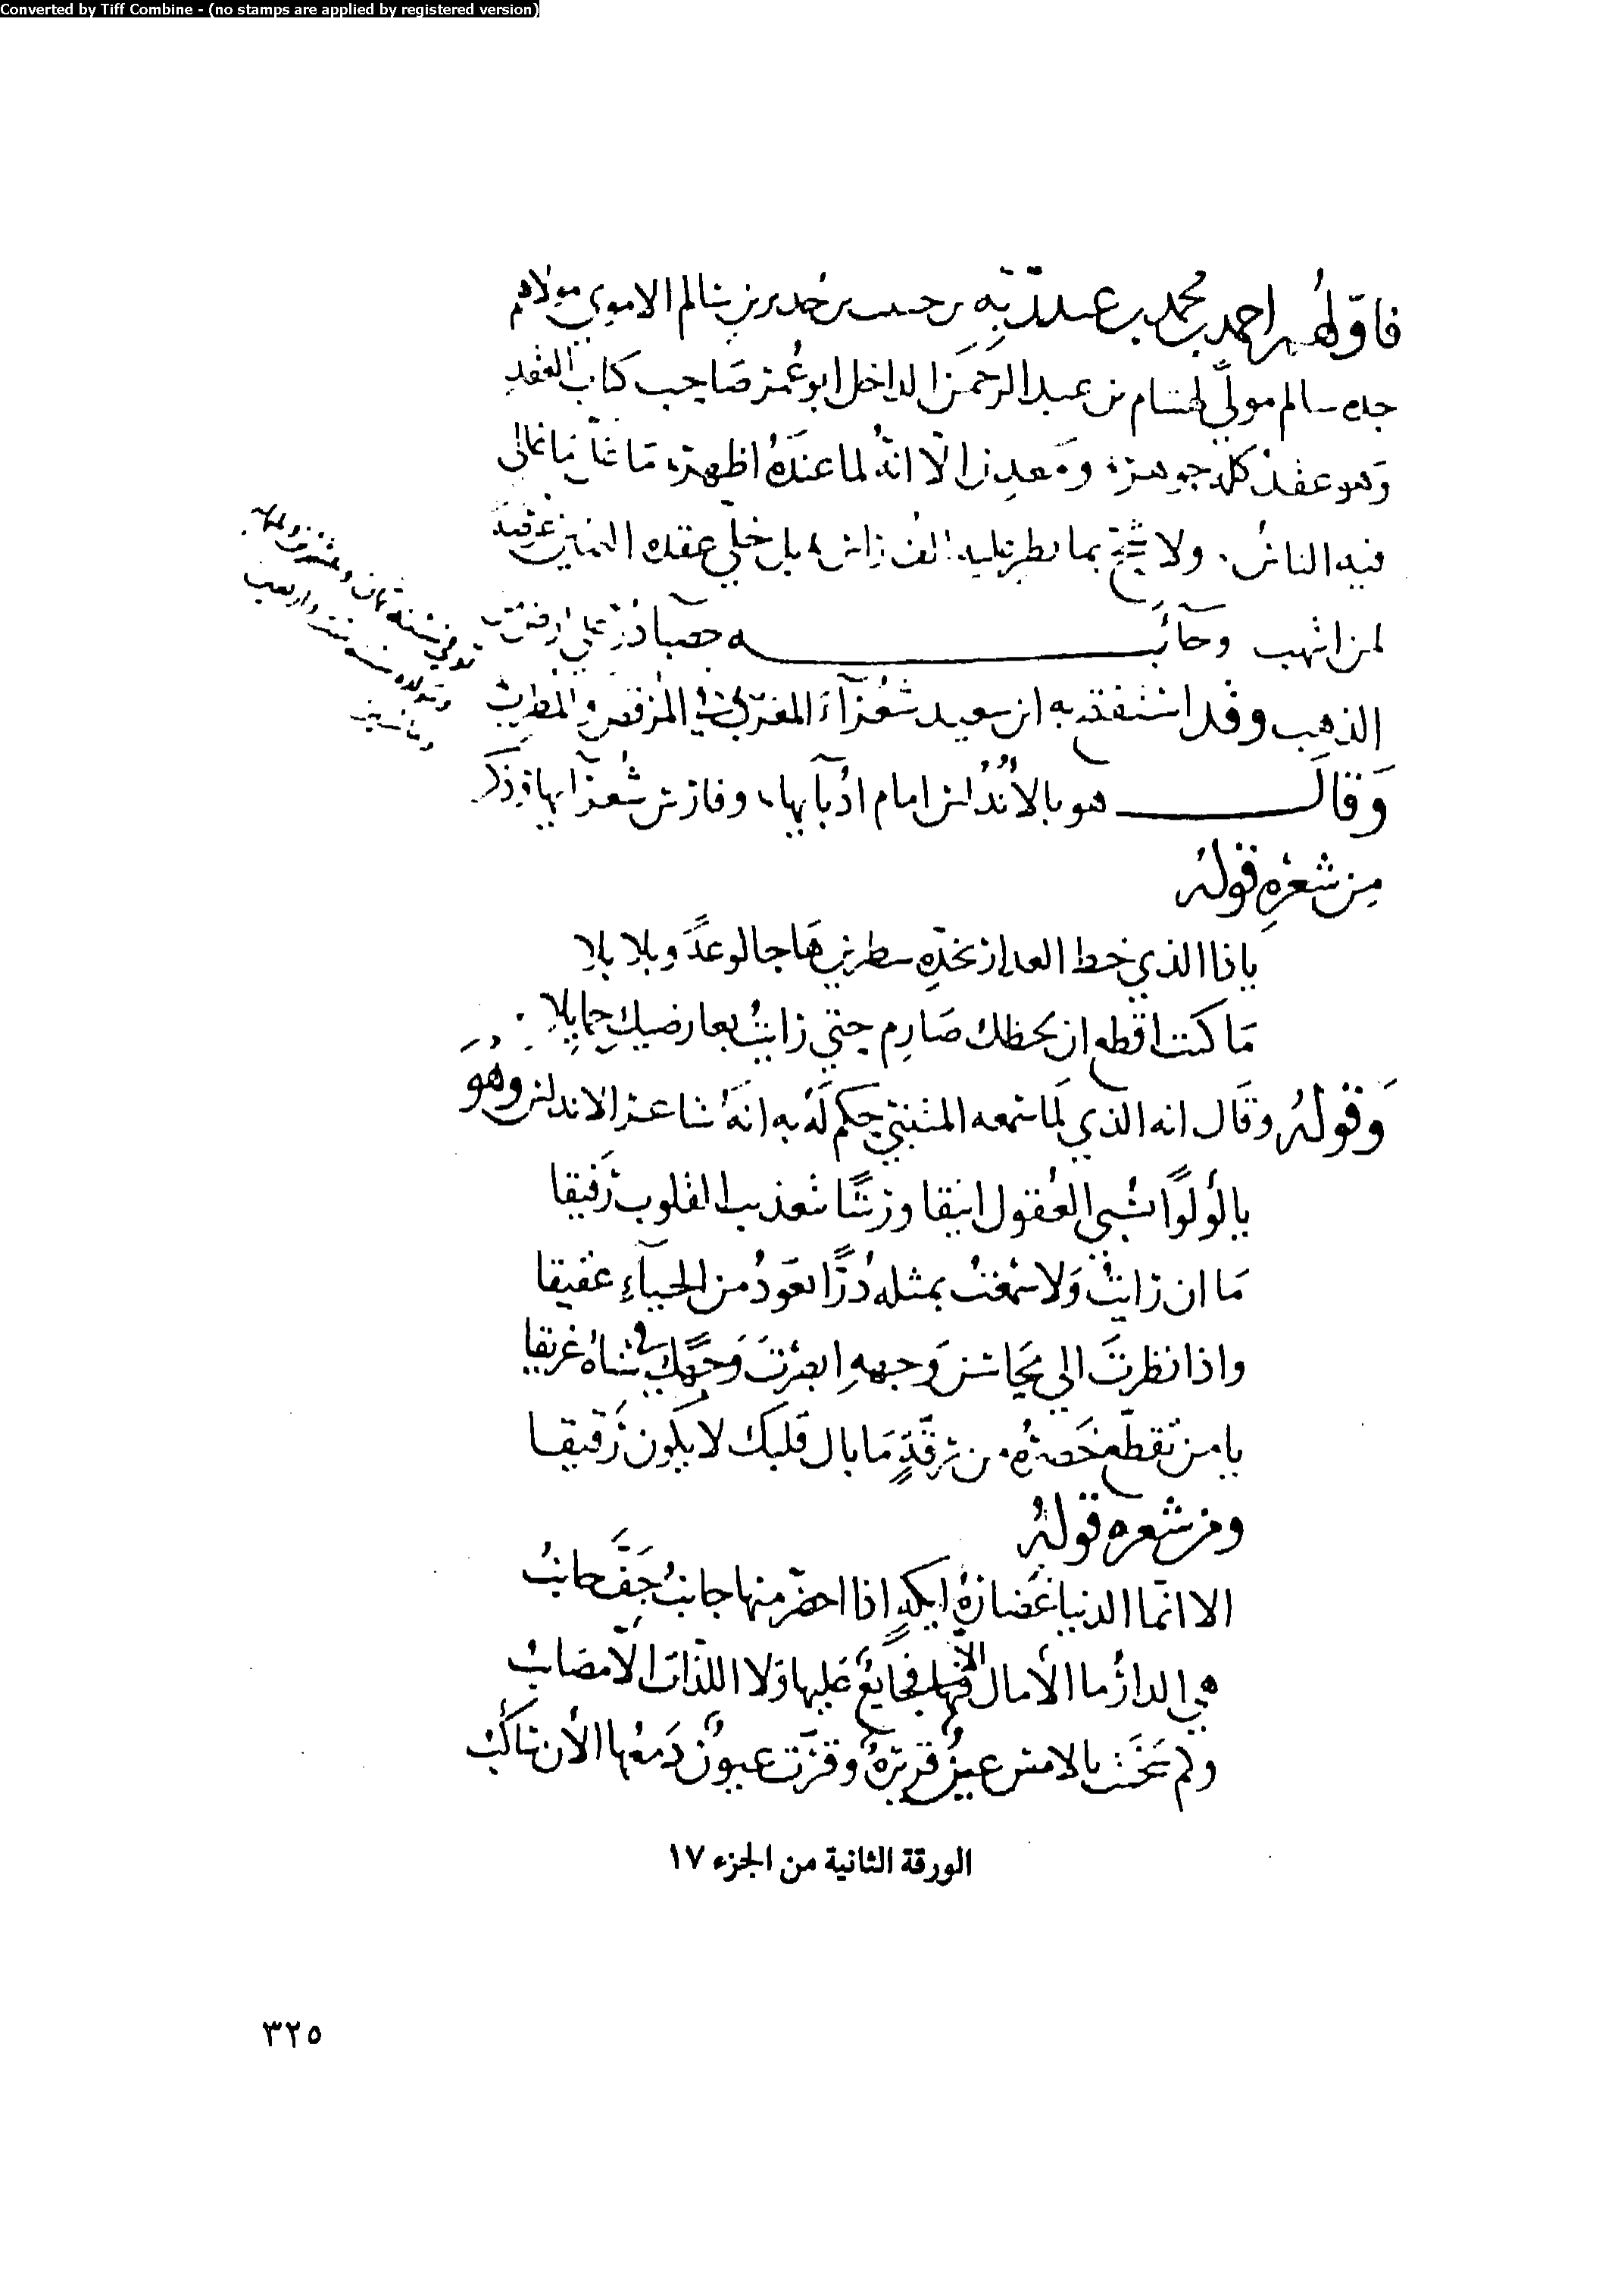 Converted by Tiff Combine - (no stamps are applied by registered version)
فاوّلهم احمد بن محمد بن عبدربّه بن حبيب بن حُدير بن سالم الاموي مولاهم
جده سالم مولىً لهشام بن عبد الرحمن الداخل ابو عُمر صَاحب كتاب العقد
وَهو عقد كله جوهر، ومَعدن الّا انه لما عندَهُ اظهر، مَا
فيه الناس. ولا بما بل خلّي عقده الثمين
لمن انتهب وحآئبه
الذهب وقد استفتح به ابن سعيد شعرآءَ المغرب في المرقص والمطرب
وَقال هو بالأندلس امام ادبآيها، وفارس شعرآيها، وذكر
مِن شعْرِهِ قولهُ
يا ذا الذي خط العذار بخدّهِ سطرين هَاجا لوعَةً وبلابلا
مَا كنت اقطع ان لحظك صَارِم حتى رايتُ بعارضيك حمايلا
وَقولهُ وقَال انه الذي لمَّا سمعه المتنبي حكم لهُ به انهُ شاعر الاندلس وهُوَ
يالُؤلُؤًا يسْبي العُقول انيقا ورشًا بتعذيب القلوب رَفيقا
مَا ان رايتُ وَلا سَمعْتُ بمثله دُرًّا يعَودُ من الحيآءِ عقيقا
واذا نظرتَ الي محَاسن وَجههِ ابصَرْتَ وَجهَكَ في سَناهُ غريقا
يا من تقطّع خَصرهُ من رِقّةٍ مَا بال قلبك لا يكون رَقيقا
ومن شعره قولهُ
الا انمّا الدنيا غَضارةُ ايكةٍ اذا اخضرّ منها جانبُ جَفَّ جانبُ
هي الدارُ ما الأمال الّا فجايعُ عَليها وَلا اللذّات الّا مصَايبُ
وكم سَخنَت بالامس عينٌ قريرةٌ وقرَّت عيونٌ دَمعُها الأن سَاكبُ
توفي سنة ثمان وعشرين وثلثماية
ومولده سنة ست واربعين
وماتين
الورقة الثانية من الجزء ١٧
٣٢٥